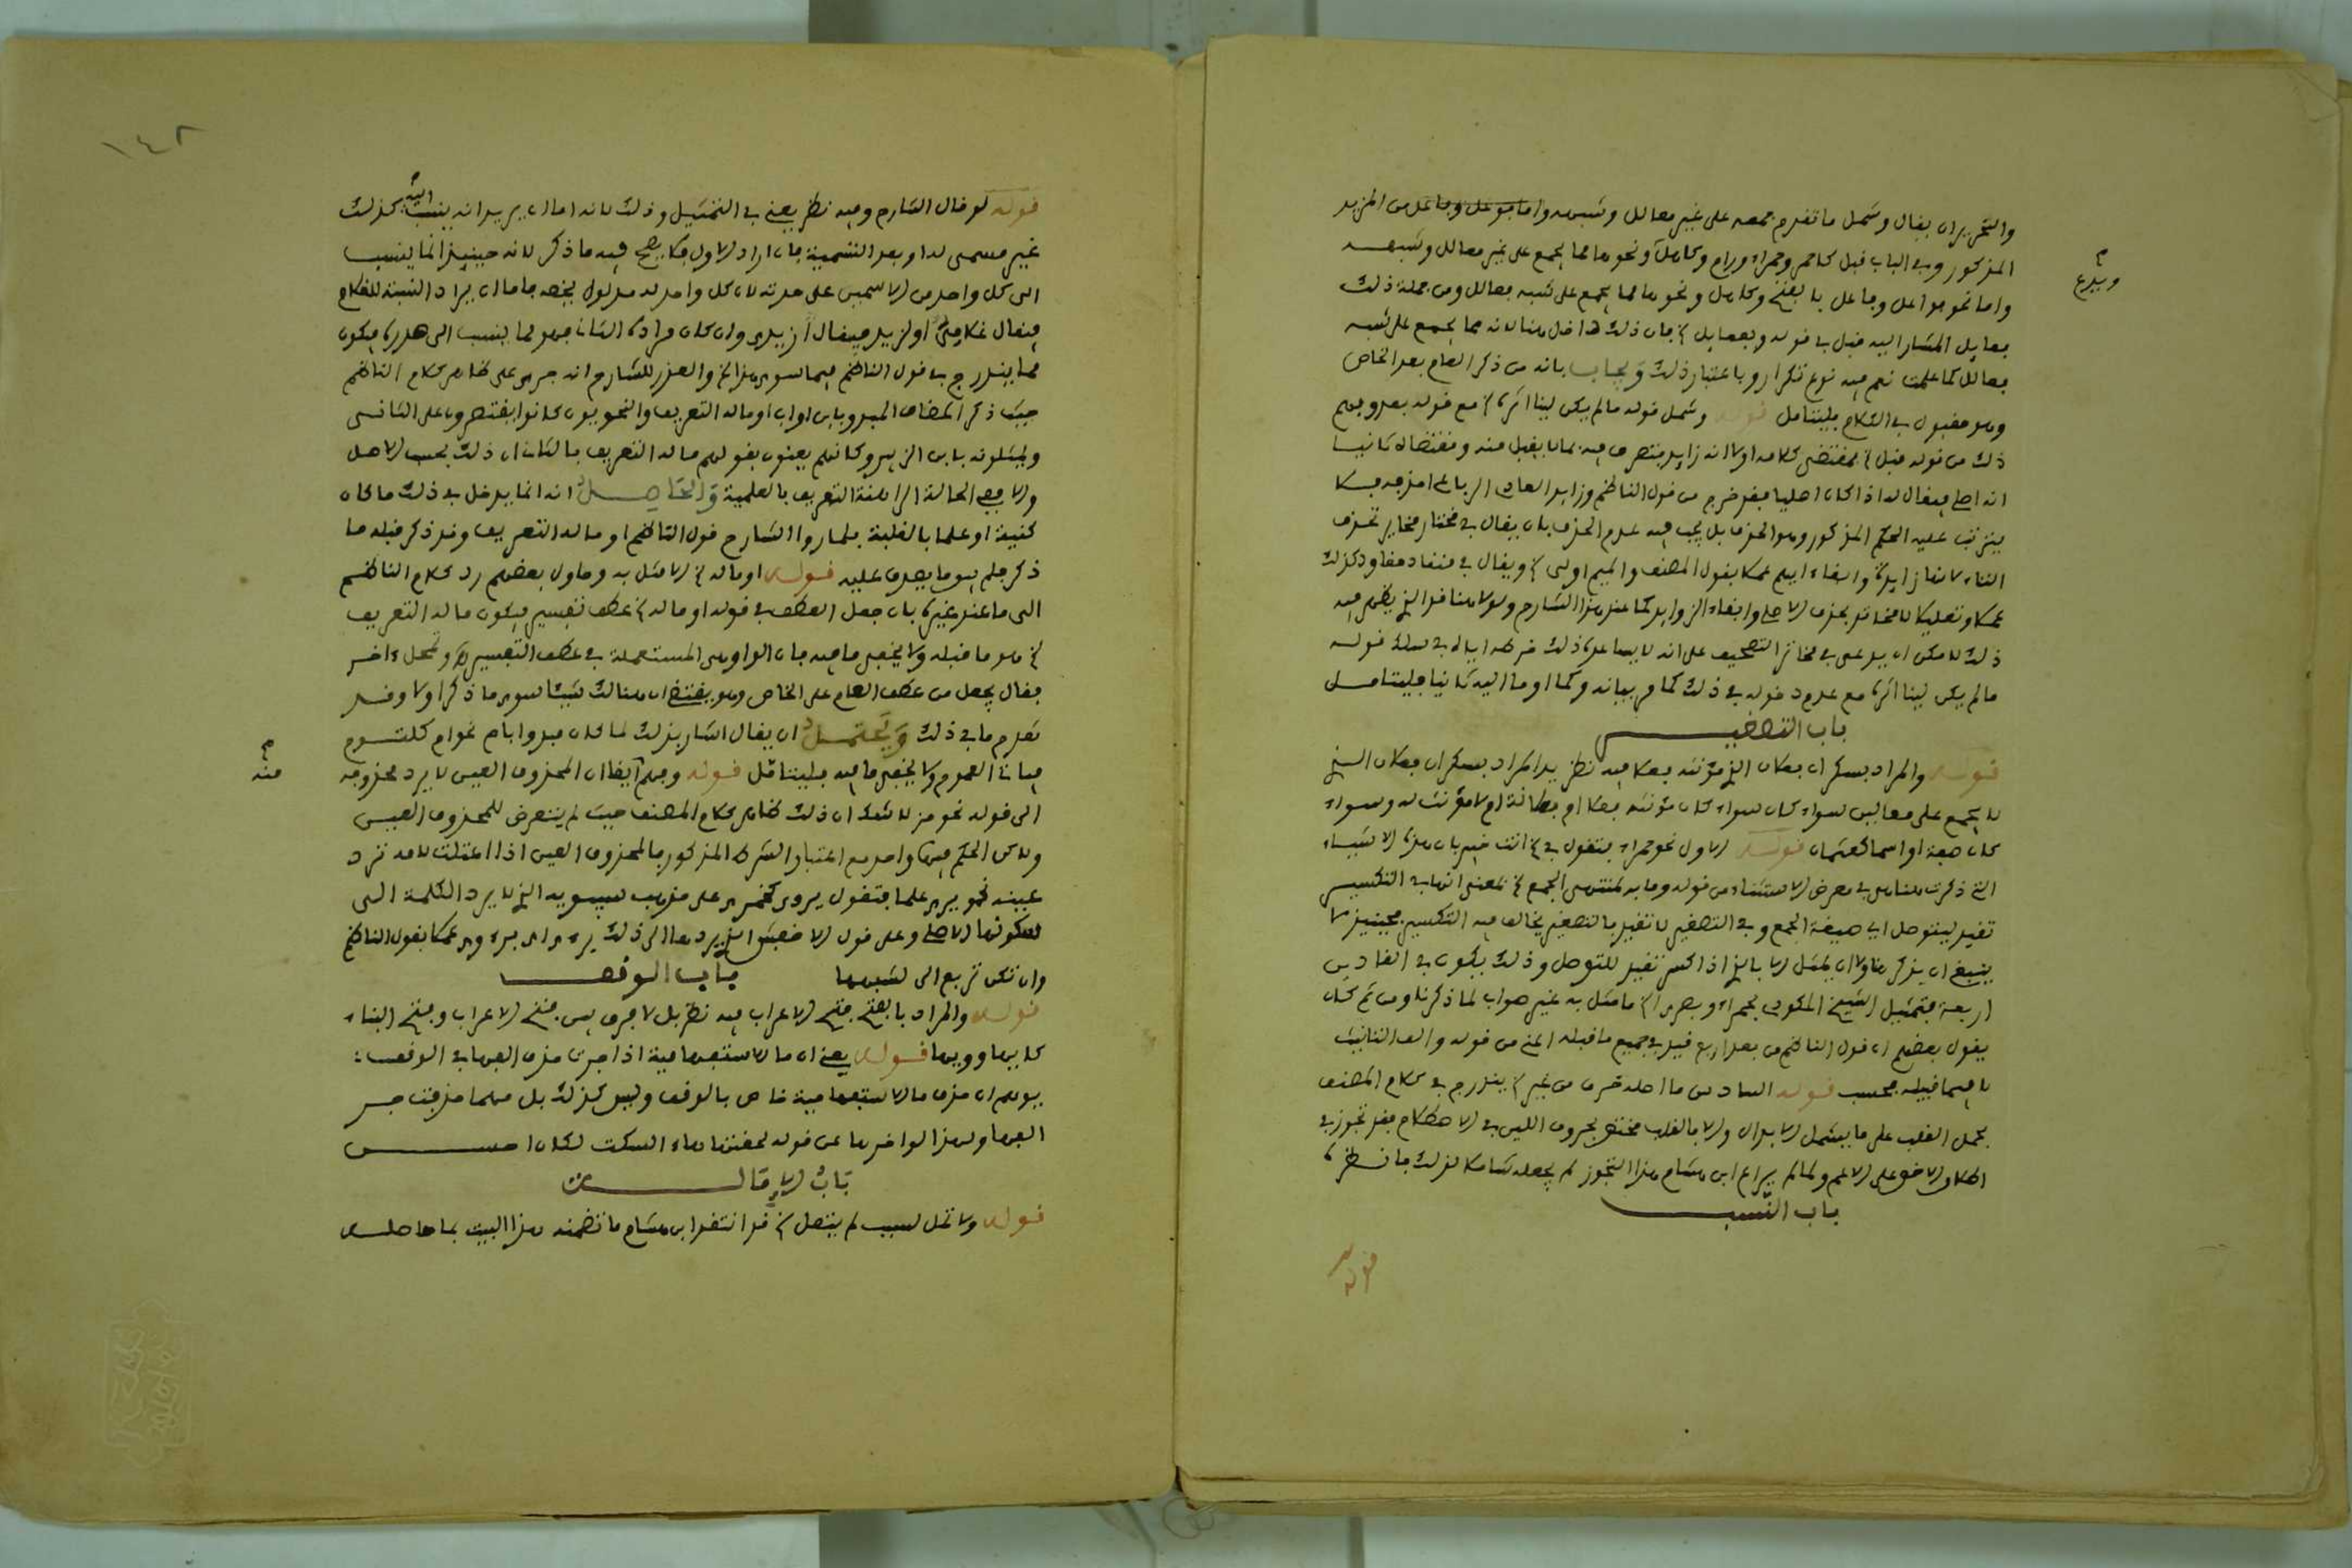 والتحرير ان يقال وشمل ما تقدم جمعه على غير فعالل وشبهه واما فوعل وفاعل من المزيد
المذكور وفي الباب قبل كاحمر وحمراء ورام وكامل ونحوها مما يجمع على غير فعالل وشبهه
ويدرج
واما نحو فواعل وفاعل بالفتح وكامل ونحوها مما يجمع على شبه فعالل ومن جملة ذلك
فعايل المشار اليه قبل في قوله وبفعايل فان ذلك داخل هنا لانه مما يجمع على شبه
فعالل كما علمت نعم فيه نوع تكرار وباعتبار ذلك ويجاب بانه من ذكر العام بعد الخاص
وهو مقبول في الكلام فليتامل قوله وشمل قوله ما لم يكن لينا اثره مع قوله بعد وفهم
ذلك من قوله قبل فمقتضى كلامه اولا انه زايد يتصرف فيه بما يقبل منه ومقتضاه ثانيا
انه اصلي فيقال له اذا كان اصليا فقد خرج من قول الناظم وزايد العادي الرباعي احذفه فلا
يترتب عليه الحكم المذكور وهو الحذف بل يجب فيه عدم الحذف بان يقال في مختار مخاير بحذف
التاء لانها زايدة وابقاء الميم عملا بقول المصنف والميم اولى ويقال في منقاد مقاود كذلك
عملا وتعليلا لا مخاتر بحذف الاصلي وابقاء الزوايد كما عند هذا الشارح ولولا هنا قد الذي يظهر فيه
ذلك لامكن ان يدعى في مخاتر التصحيف على انه لا يساعده ذلك خرطه اياه في سلك قوله
ما لم يكن لينا اثره مع عدم دخوله في ذلك كما مر بيانه وكما اوما اليه ثانيا فليتامل
باب التصغير
قوله والمراد بسكران فعلان الذي مؤنثه فعلى فيه نظر بل المراد بسكران فعلان الذي
لا يجمع على فعالين سواء كان سواء كان مؤنثه فعلى او فعلانة ام لا مؤنث له وسواء
كان صفة او اسما كعثمان قوله الاول نحو حمراء فتقول في انت خبير بان هذه الاشياء
التي ذكرت هنا هي في معرض الاستثناء من قوله وما به لمنتهى الجمع بمعنى انها في التكسير
تغير ليتوصل الى صيغة الجمع وفي التصغير لا تغير فالتصغير يخالف فيه التكسير فحينيذ لا
ينبغي ان يذكر هنا ولا ان يمثل الا بالذي اذا كسر تغير للتوصل وذلك يكون في القادين
اربعة فتمثيل الشيخ المكودي بحمراء وبصري ما مثل به غير صواب لما ذكرنا ومن ثم كان
يقول بعضهم ان قول الناظم من بعد اربع قيد في جميع ما قبله اعني من قوله والف التانيث
لا فيما قبله فحسب قوله السادس ما اصله حرف من غير يندرج في كلام المصنف
بحمل القلب على ما يشمل الابدال والا فالقلب مختص بحروف اللين في الاصطلاح فقد تجوز في
اطلاق الاخص على الاعم ولما لم يراع ابن هشام هذا التجوز لم يجعله شاملا لذلك فانظره
باب النسب
قوله
١٤٢
قوله لو قال الشارح وفيه نظر يعني في التمثيل وذلك لانه اما ان يريد انه ينسب اليه كذلك
غير مسمى له او بعد التسمية فان اراد الاول فلا يصح فيه ما ذكر لانه حينيذ انما ينسب
الى كل واحد من الاسمين على حدته لان كل واحد له مدلول يخصه فاما ان يراد النسبة للغلام
فيقال غلامي او لزيد فيقال زيدي وان كان مراده الثاني فهو لما ينسب الى صدره فيكون
مما يندرج في قول الناظم فيما سوى هذا والعذر للشارح انه جرى على ظاهر كلام الناظم
حيث ذكر المضاف المبدو بابن او اب او ماله التعريف والنحويون كانوا يقتصرون على الثاني
ويمثلونه بابن الزبير وكانهم يعنون بقولهم ماله التعريف بالثاني ان ذلك بحسب الاصل
والا ففي الحالة الراهنة التعريف بالعلمية والحاصل انه انما يدخل في ذلك ما كان
كنية او علما بالغلبة فلما روا الشارح قول الناظم او ماله التعريف وقد ذكر قبله ما
ذكر فلم يبق ما يصدق عليه قوله او ماله الا مثل به وحاول بعضهم رد كلام الناظم
الى ما عند غيره بان جعل العطف في قوله او ماله عطف تفسير فيكون ماله التعريف
هو ما قبله ولا يخفى ما فيه فان الواو هي المستعملة في عطف التفسير وتمحل ءاخر
فقال يجعل من عطف العام على الخاص وهو يقتضي ان هنالك شيئا سوى ما ذكر اولا وقد
تقدم ما في ذلك ويحتمل ان يقال اشار بذلك لما كان مبدوا بام نحو ام كلثوم
منه
فياتي العموم ولا يخفى ما فيه فليتامل قوله وفهم ايضا ان المحذوف العين لا يرد محذوفه
الى قوله نحو مذ لا شك ان ذلك ظاهر كلام المصنف حيث لم يتعرض للمحذوف العين
ولكن الحكم فيها واحد مع اعتبار الشرط المذكور فالمحذوف العين اذا اعتلت لامه ترد
عينه نحو يرى علما فتقول يروي كنمري على مذهب سيبويه الذي لا يرد الكلمة الى
سكونها الاصلي وعلى قول الاخفش الذي يردها الى ذلك يرءي او يروي عملا بقول الناظم
وان تكن تربع الى لشبهها باب الوقف
قوله والمراد بالفتح فتح الاعراب فيه نظر بل لا فرق بين فتح الاعراب وفتح البناء
كايها وويها قوله يعني ان ما الاستفهامية اذا جرت حذف الفها في الوقف
يوهم ان حذف ما الاستفهامية خاص بالوقف وليس كذلك بل مهما حذفت جر
الفها ولهذا لو اخرها عن قوله لحقتها هاء السكت لكان احسن
باب الامالة
قوله ولا تمل لسبب لم يتصل قد انتقد ابن هشام ما تضمنه هذا البيت بما حاصله